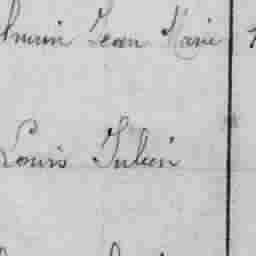 Jean Marie
Louis Julien